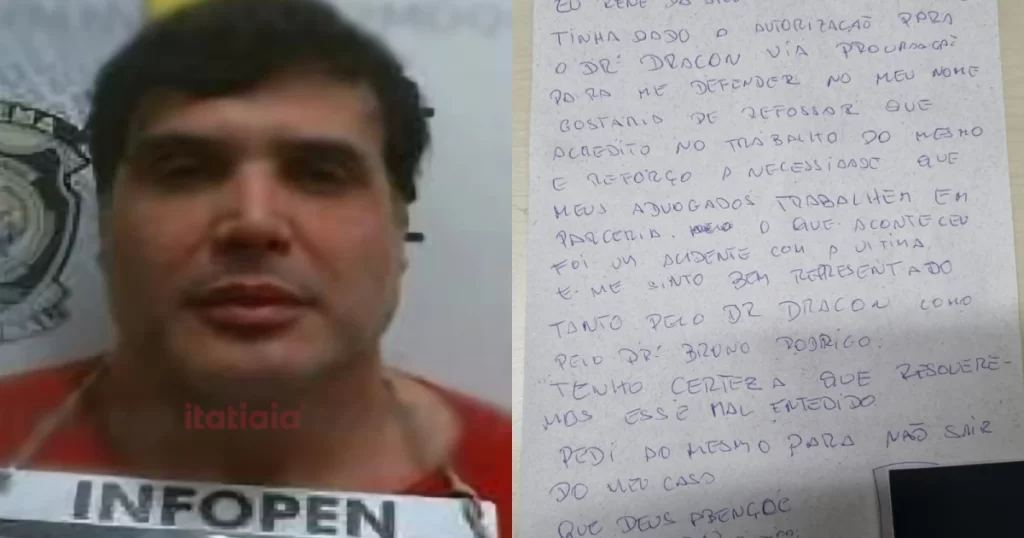 itatiaia
INFOPEN
EU RENE DA
TINHA DADO A AUTORIZAÇÃO PARA
O DR: DRACON VIA PROCURAÇÃ
PARA ME DEFENDER NO MEU NOME
GOSTARIA DE REFOSSAR QUE
ACREDITO NO TRABALHO DO MESMO
E REFORÇO A NECESSIDADE QUE
MEUS ADVOGADOS TRABALHEM EM
PARCERIA. O QUE ACONTECEU
FOI UM ACIDENTE COM A VITIMA
E ME SINTO BEM REPRESENTADO
TANTO PELO DR DRACON COMO
PELO DR: BRUNO RODRIGO.
TENHO CERTEZA QUE RESOLVERE-
MOS ESSE MAL ENTEDIDO.
PEDI AO MESMO PARA NÃO SAIR
DO MEU CASO
QUE DEUS ABENÇOE